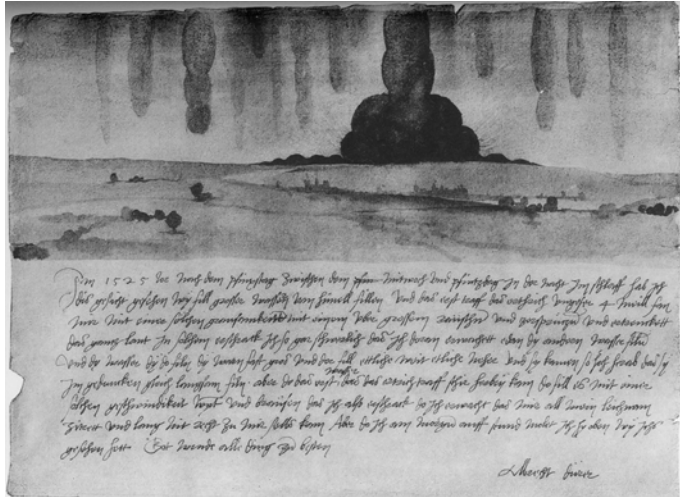 Im 1525 Jor nach dem pfinxstag zwischen dem Mitwoch und pfintzdag in der nacht im schlaff hab ich
dis gesicht gesehen wy fill grosser wassern vom himell fillen Und das erst traff das erthrich ungefer 4 meill fan
mir mit einer solchen grausamkeitt mit einem uber grossem raüschn und zersprützn und ertrenckett
das gantz lant In solchem erschrack ich so gar schwerlich das ich doran erwachett edan dy andern wasser filn
Und dy wasser dy do filn dy warn fast gros und der fill ettliche weit etliche neher und sy kamen so hoch herab das sy
im gedancken gleich langsam filn. aber do das erst wasser das das ertrich traff schir herbey kam do fill es mit einer
solchen geschwindikeit wynt und braüsen das ich also erschrack do ich erwacht das mir all mein leichnam
zitrett und lang nit recht zu mir selbs kam Aber do ich am morgen auff stund molet ich hie oben wy ichs
gesehen hett Got wende alle ding zu besten
Albrecht dürer